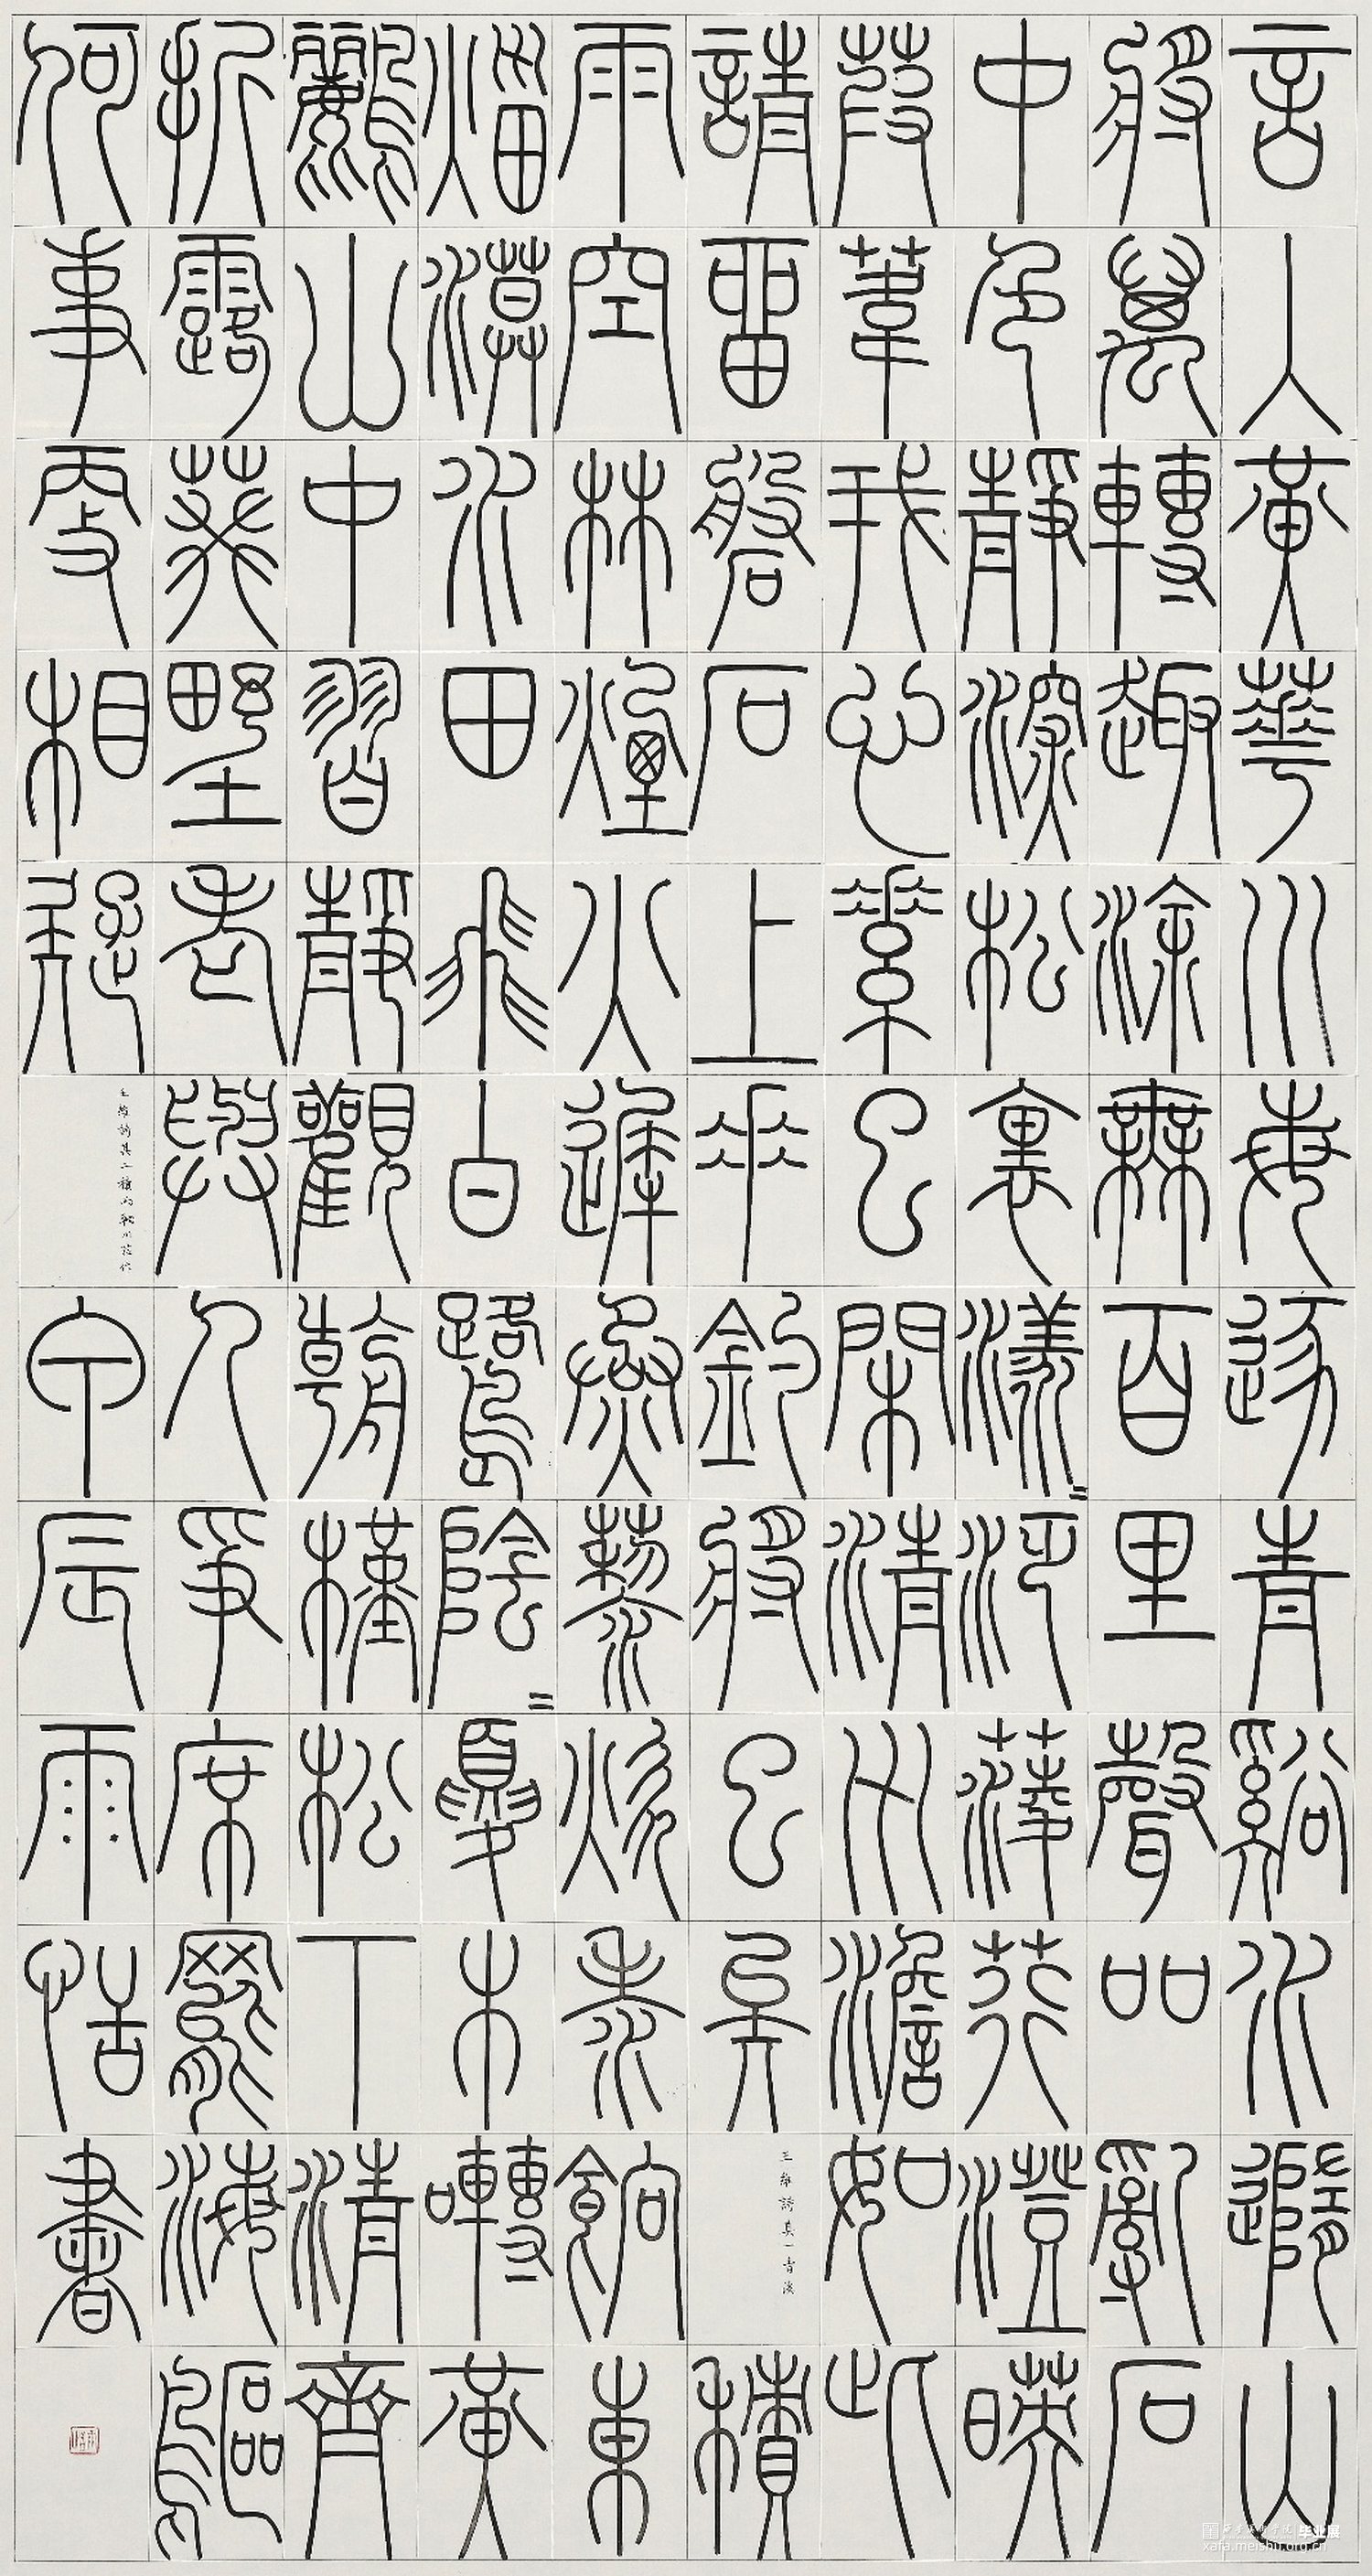 言入黃華川每逐青谿水隨山
將萬轉趣涂無百里聲吅亂石
中色靜深松裏漾=汎菱荇澄映
葭葦我心素已閑清川澹如此
請留盤石上垂釣將已矣
王維詩其一青溪
積
雨空林煙火遲烝藜炊黍餉東
菑漠水田飛白鷺陰=夏木囀黃
鸝山中習靜觀朝槿松下清齋
折露葵野老與人爭席罷海鷗
何事相疑
王維詩其二積雨輞川莊作
甲辰雨恬書
毕业展
xafa.meishu.org.cn